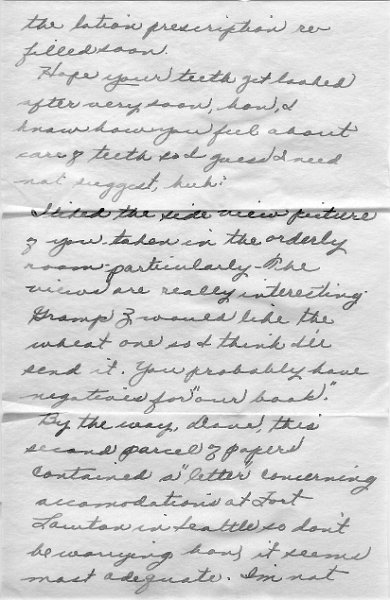 the lotion prescription re-
filled soon.
Hope your teeth get looked
after very soon, hon, I
know how you feel about
care of teeth so I guess I need
not suggest, huh?
I liked the side view picture
of you taken in the orderly
room particularly - The
views are really interesting.
Gramp Z would like the
wheat one so I think I'll
send it. You probably have
negatives for "our book".
By the way, Dave, this
second parcel of papers
contained a "letter" concerning
accomodations at Fort
Lawton in Seattle so don't
be worrying hon, it seems
most adequate. I'm not